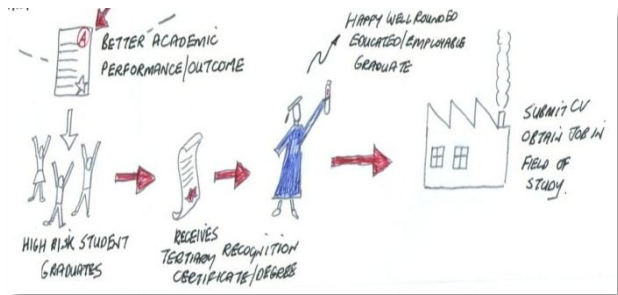 A
BETTER ACADEMIC
PERFORMANCE/OUTCOME
HAPPY WELL ROUNDED
EDUCATED/EMPLOYABLE
GRADUATE
SUBMIT CV
OBTAIN JOB IN
FIELD OF
STUDY.
HIGH RISK STUDENT
GRADUATES
RECEIVES
TERTIARY RECOGNITION
CERTIFICATE/DEGREE